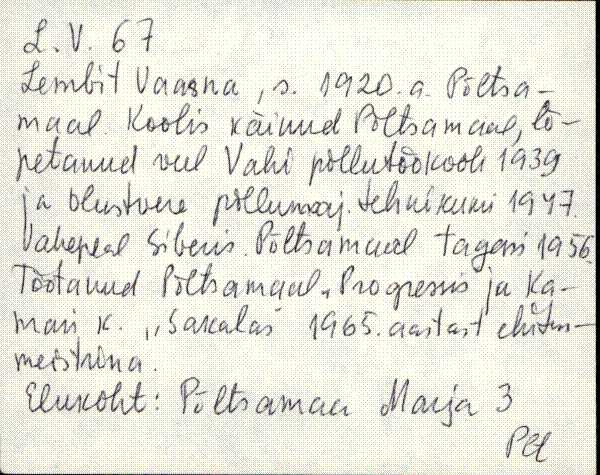 L. V. 67
Lembit Vaasna, s. 1920. a. Põltsa-
maal. Koolis käinud Põltsamaal, lõ-
petanud veel Vahi põllutöökooli 1939
ja Olustvere põllumaj. tehnikumi 1947.
Vahepeal Siberis. Põltsamaal tagasi 1956.
Töötanud Põltsamaal, Progressis ja Ka-
mari k. „Sakalas" 1965. aastast ehitus-
meistrina.
Elukoht: Põltsamaa Marja 3